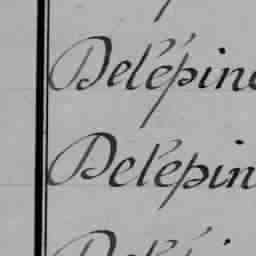 Delépine
Delépin